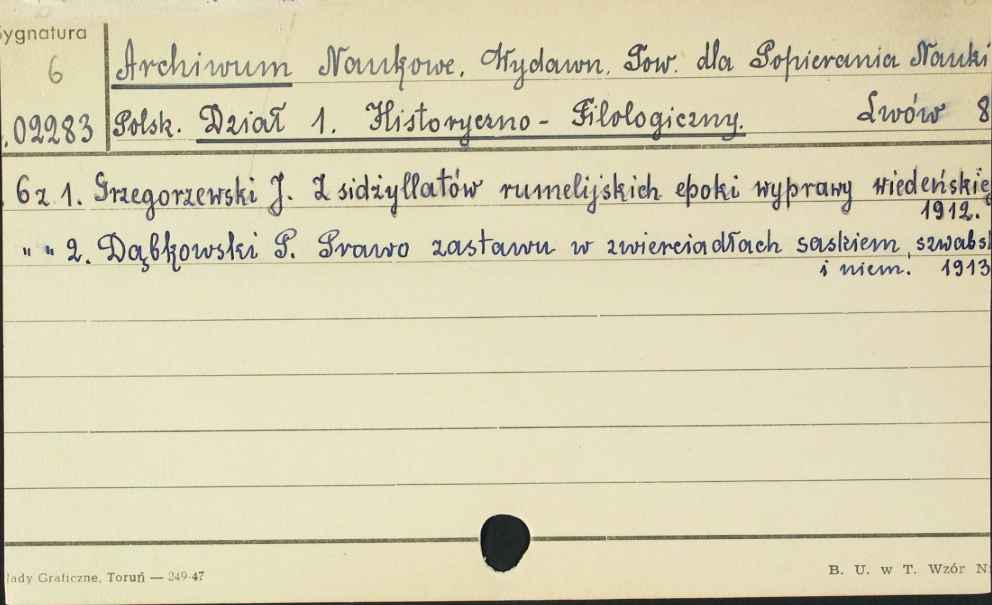 Sygnatura
6
.02283
Archiwum Naukowe. Wydawn. Tow. dla Popierania Nauki
Polsk. Dział 1. Historyczno - Filologiczny. Lwów 8
6 z 1. Grzegorzewski J. Z sidżyllatów rumelijskich epoki wyprawy wiedeńskiej
1912.
" " 2. Dąbkowski P. Prawo zastawu w zwierciadłach saskiem, szwabsk
i niem. 1913
łady Graficzne, Toruń — 249-47
B. U. w T. Wzór Nr